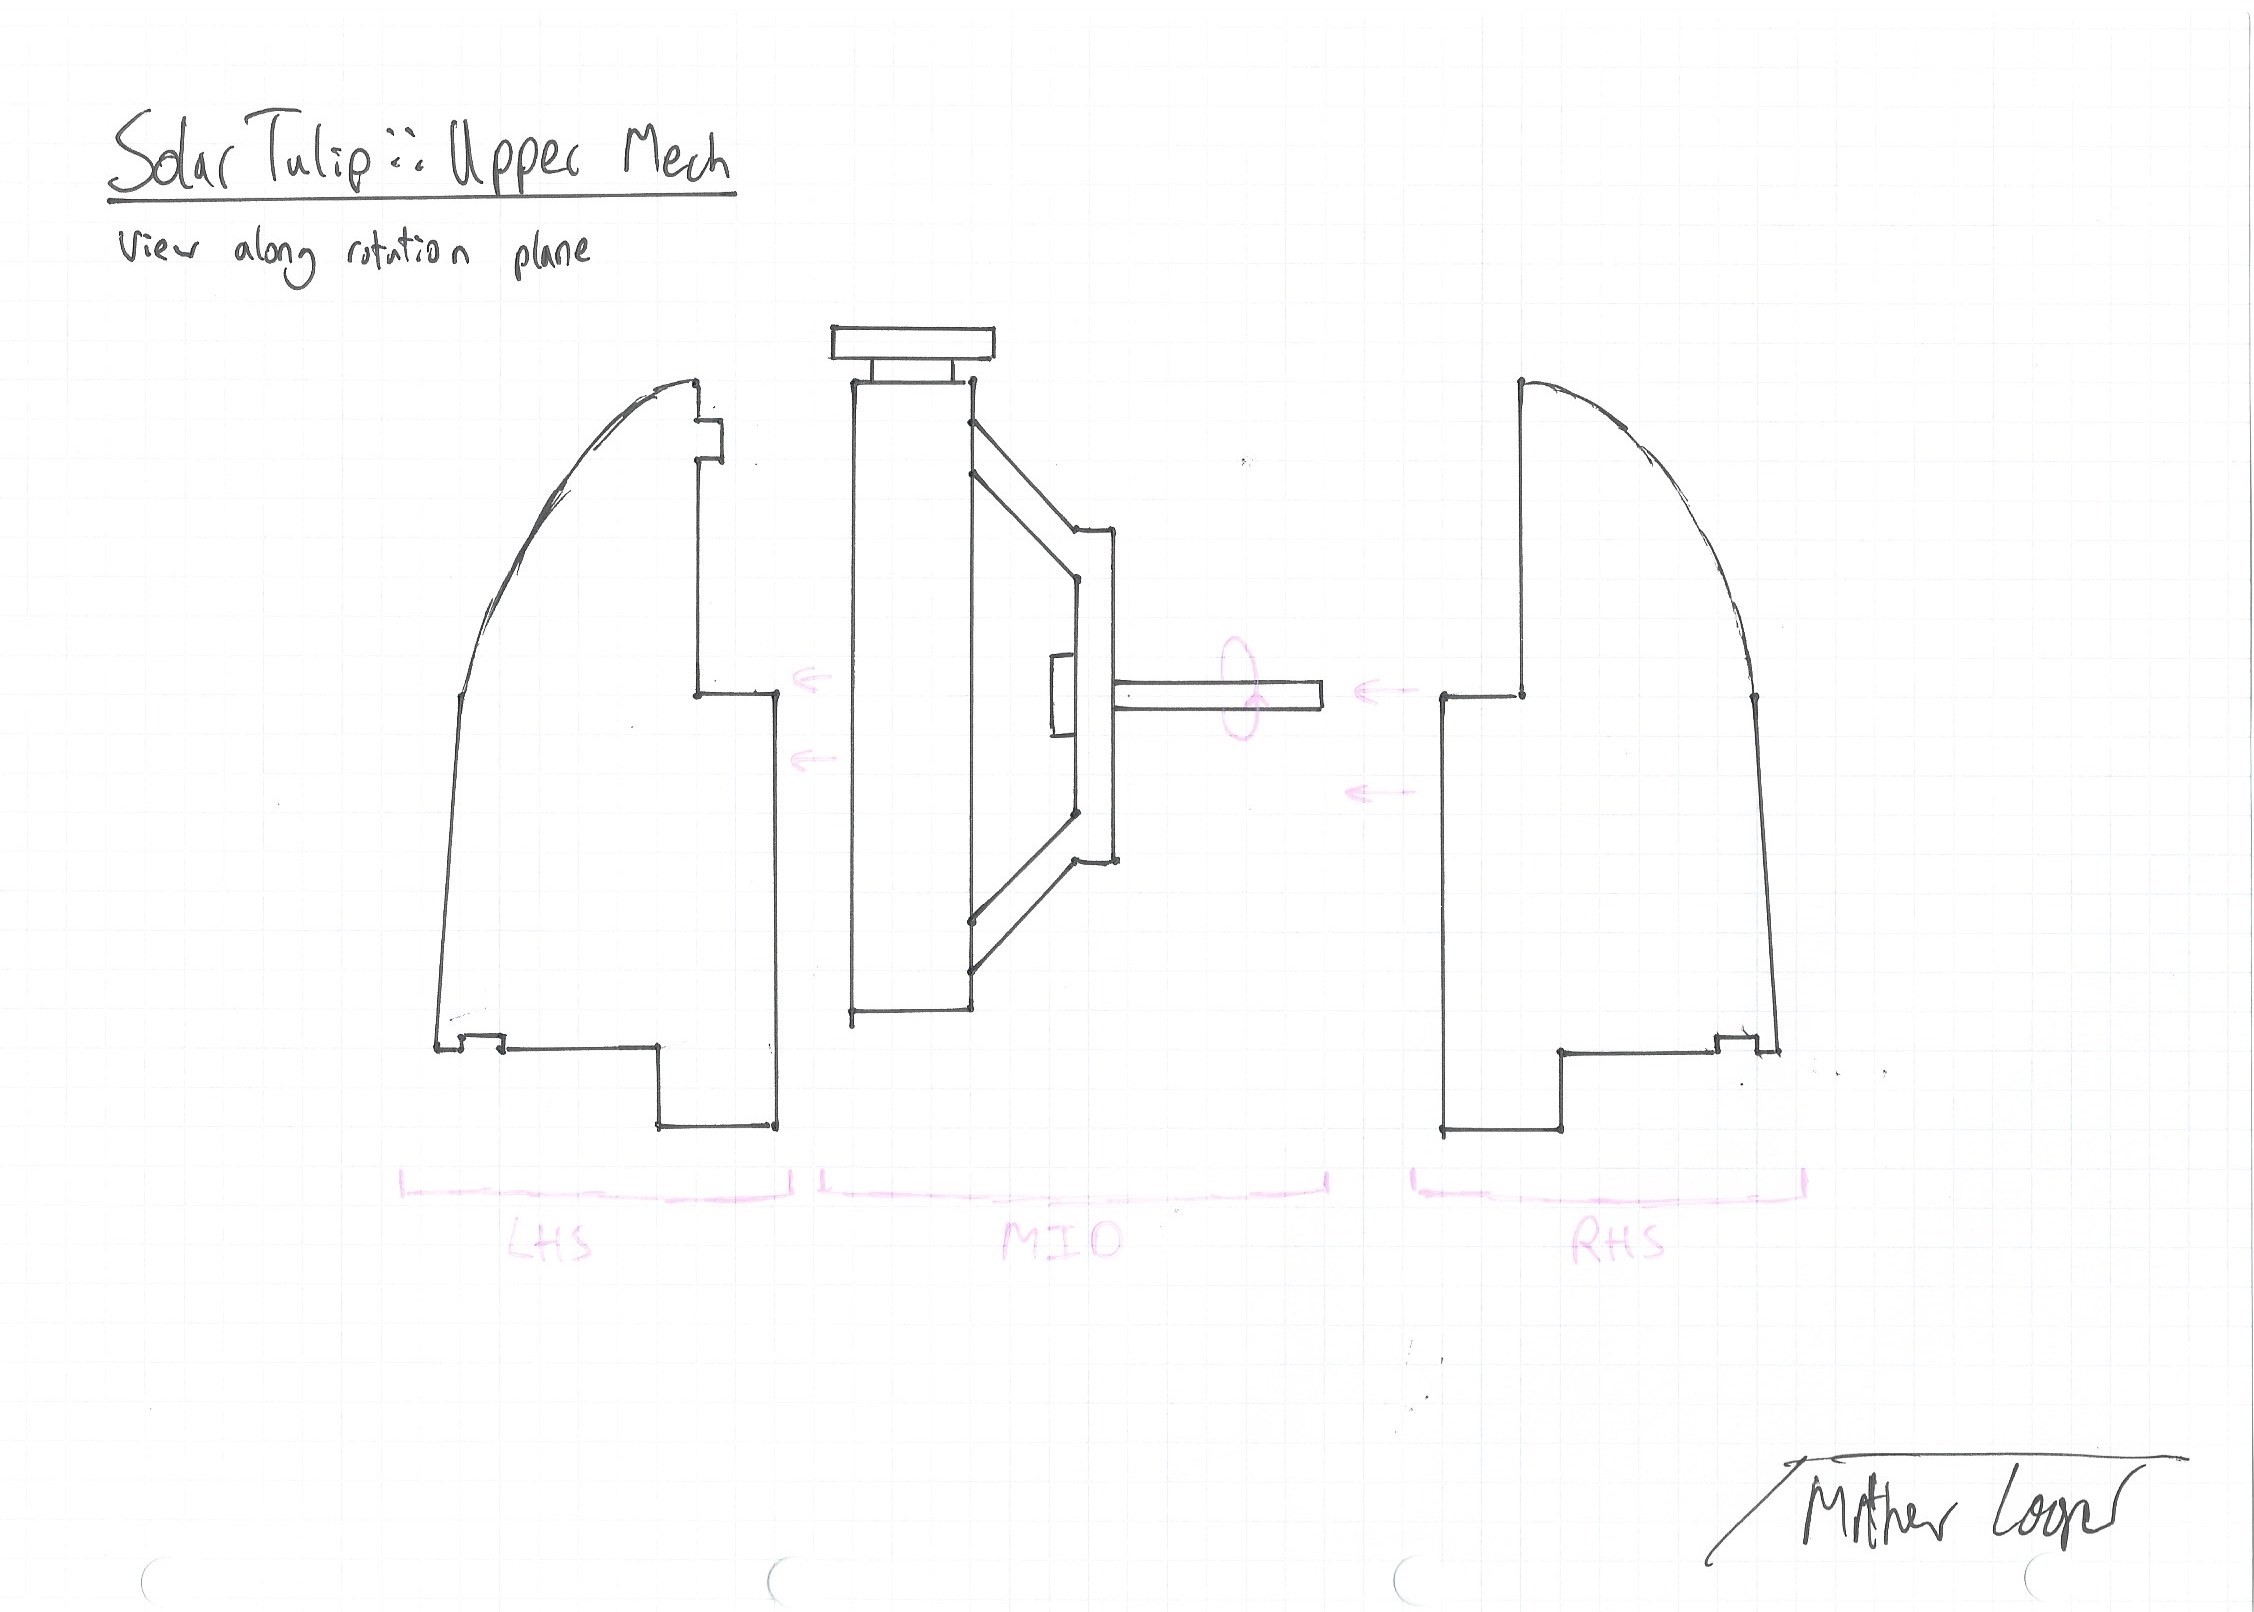 Solar Tulip :: Upper Mech
View along rotation plane
LHS
MID
RHS
Mother Loop